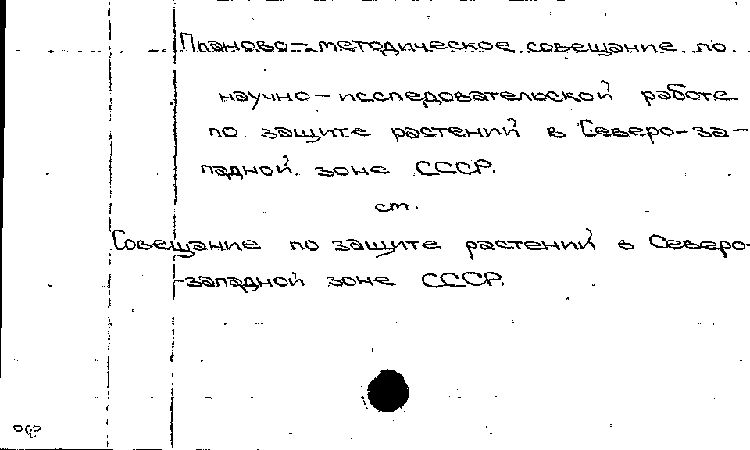 Планово-методическое совещание по
научно-исследовательской работе
по защите растений в Северо-за-
падной зоне СССР.
см.
Совещание по защите растений в Северо-
-западной зоне СССР.